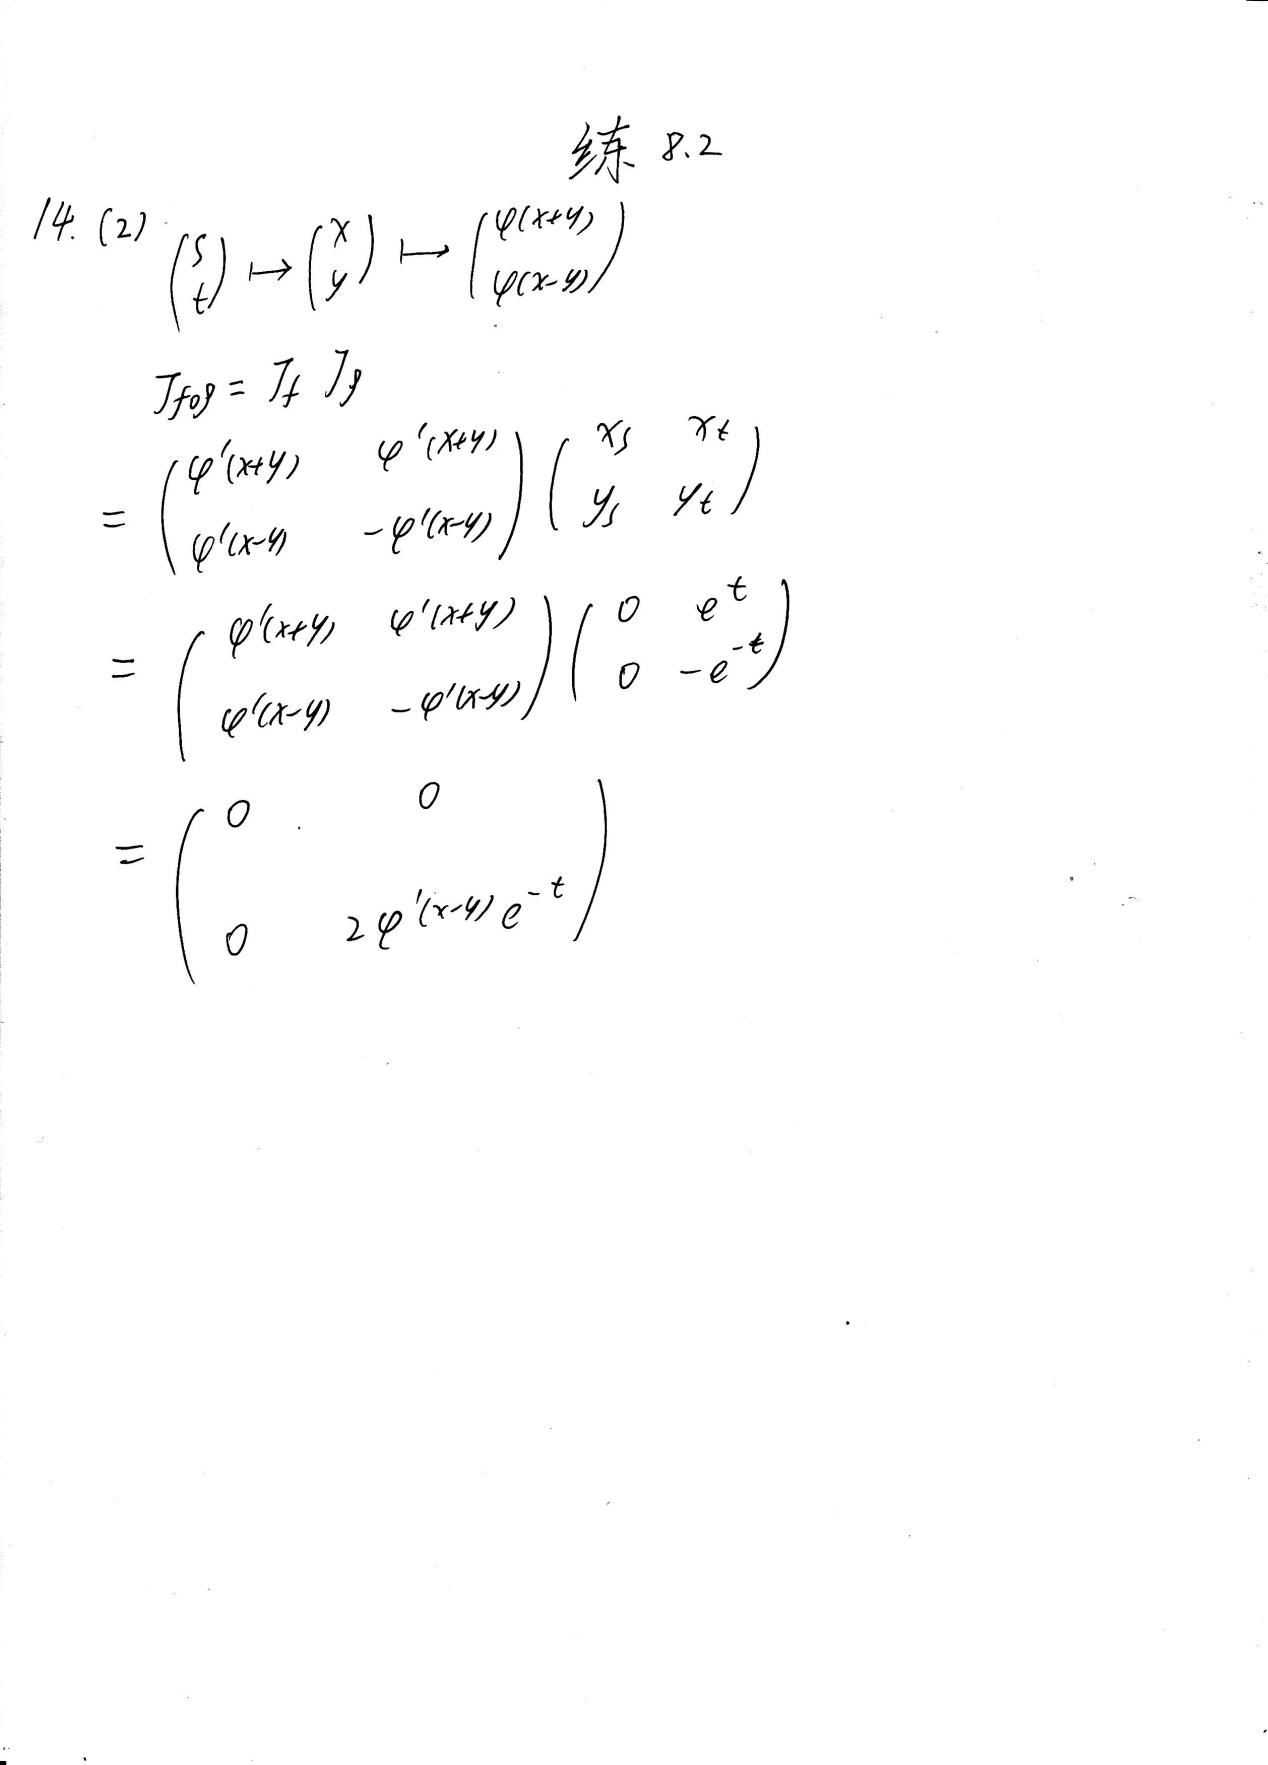 练 8.2
14. (2) (s t) ↦ (x y) ↦ (φ(x+y) φ(x-y))
J_{f∘g} = J_f J_g
= (φ'(x+y) φ'(x+y) φ'(x-y) -φ'(x-y)) (x_s x_t y_s y_t)
= (φ'(x+y) φ'(x+y) φ'(x-y) -φ'(x-y)) (0 e^t 0 -e^{-t})
= (0 0 0 2φ'(x-y)e^{-t})